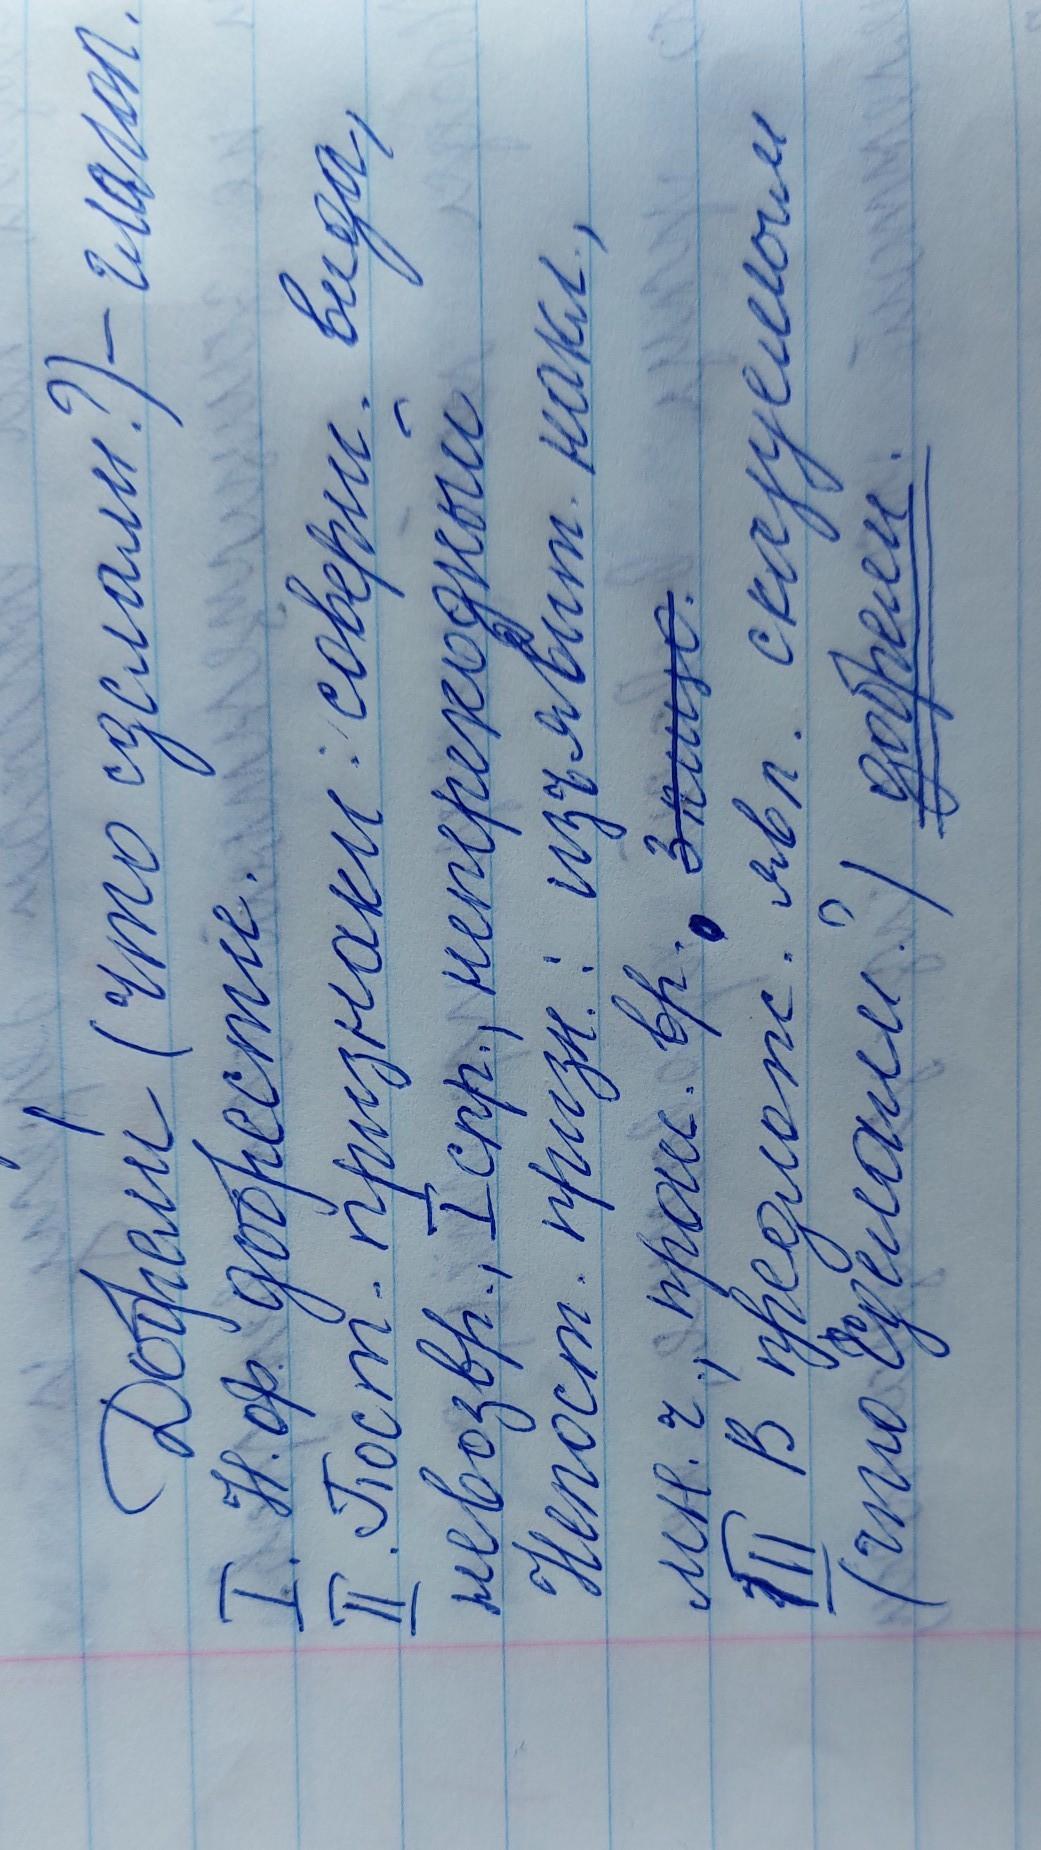 Добрели (что сделали?) – глагол.
I. Н.ф. добрести.
II. Пост. признаки: соверш. вида,
невозвр., I спр., непереходный
Непост. призн.: изъявит. накл.,
мн. ч., прош. вр. 3 лицо.
III В предлож. явл. сказуемом
(что сделали?) добрели.